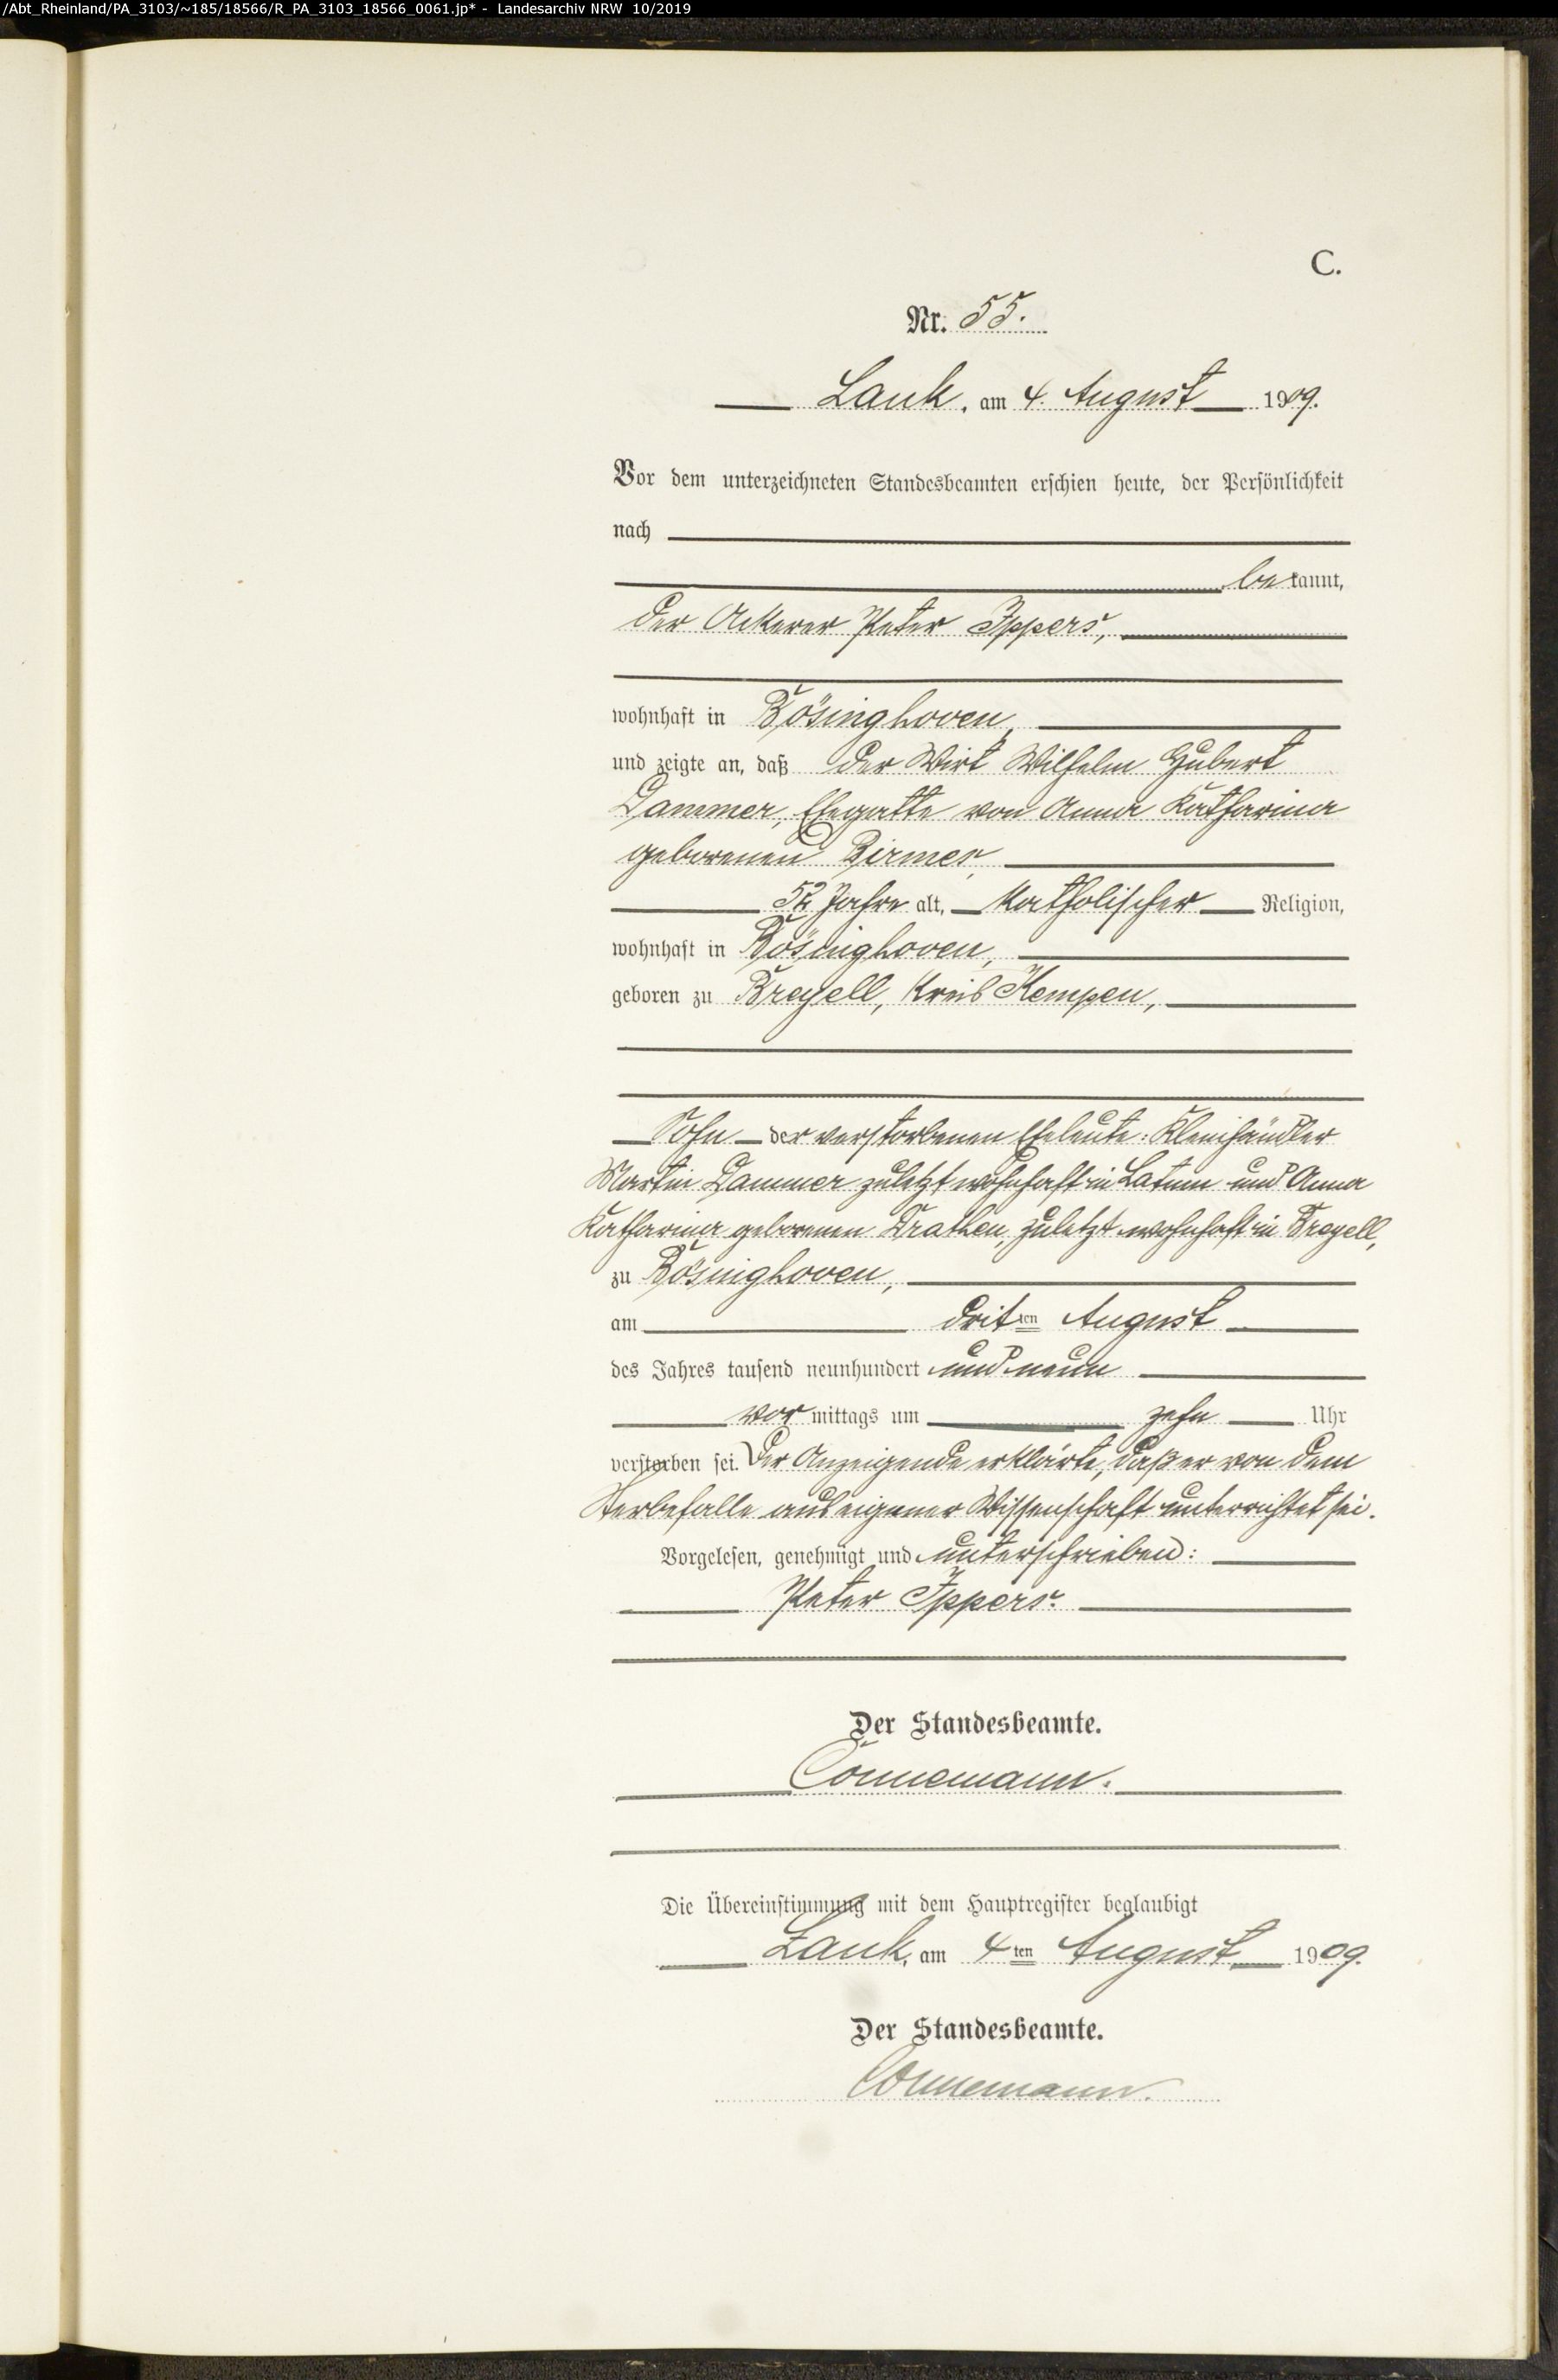 /Abt_Rheinland/PA_3103/~185/18566/R_PA_3103_18566_0061.jp* - Landesarchiv NRW 10/2019
C.
Nr. 55.
Lank, am 4. August 1909.
Vor dem unterzeichneten Standesbeamten erschien heute, der Persönlichkeit
nach
bekannt,
der Ackerer Peter Ippers,
wohnhaft in Bösinghoven,
und zeigte an, daß der Wirt Wilhelm Hubert
Dammer, Ehegatte von Anna Katharina
geborenen Birmes,
52 Jahre alt, katholischer Religion,
wohnhaft in Bösinghoven,
geboren zu Breyell, Kreis Kempen,
Sohn der verstorbenen Eheleute: Kleinhändler
Martin Dammer zuletzt wohnhaft in Latum und Anna
Katharina geborenen Drathen, zuletzt wohnhaft in Breyell,
zu Bösinghoven,
am dritten August
des Jahres tausend neunhundert und neun
vor mittags um zehn Uhr
verstorben sei. Der Anzeigende erklärte, daß er von dem
Sterbefalle aus eigener Wissenschaft unterrichtet sei.
Vorgelesen, genehmigt und unterschrieben:
Peter Ippers.
Der Standesbeamte.
Connemann.
Die Übereinstimmung mit dem Hauptregister beglaubigt
Lank, am 4ten August 1909.
Der Standesbeamte.
Connemann.